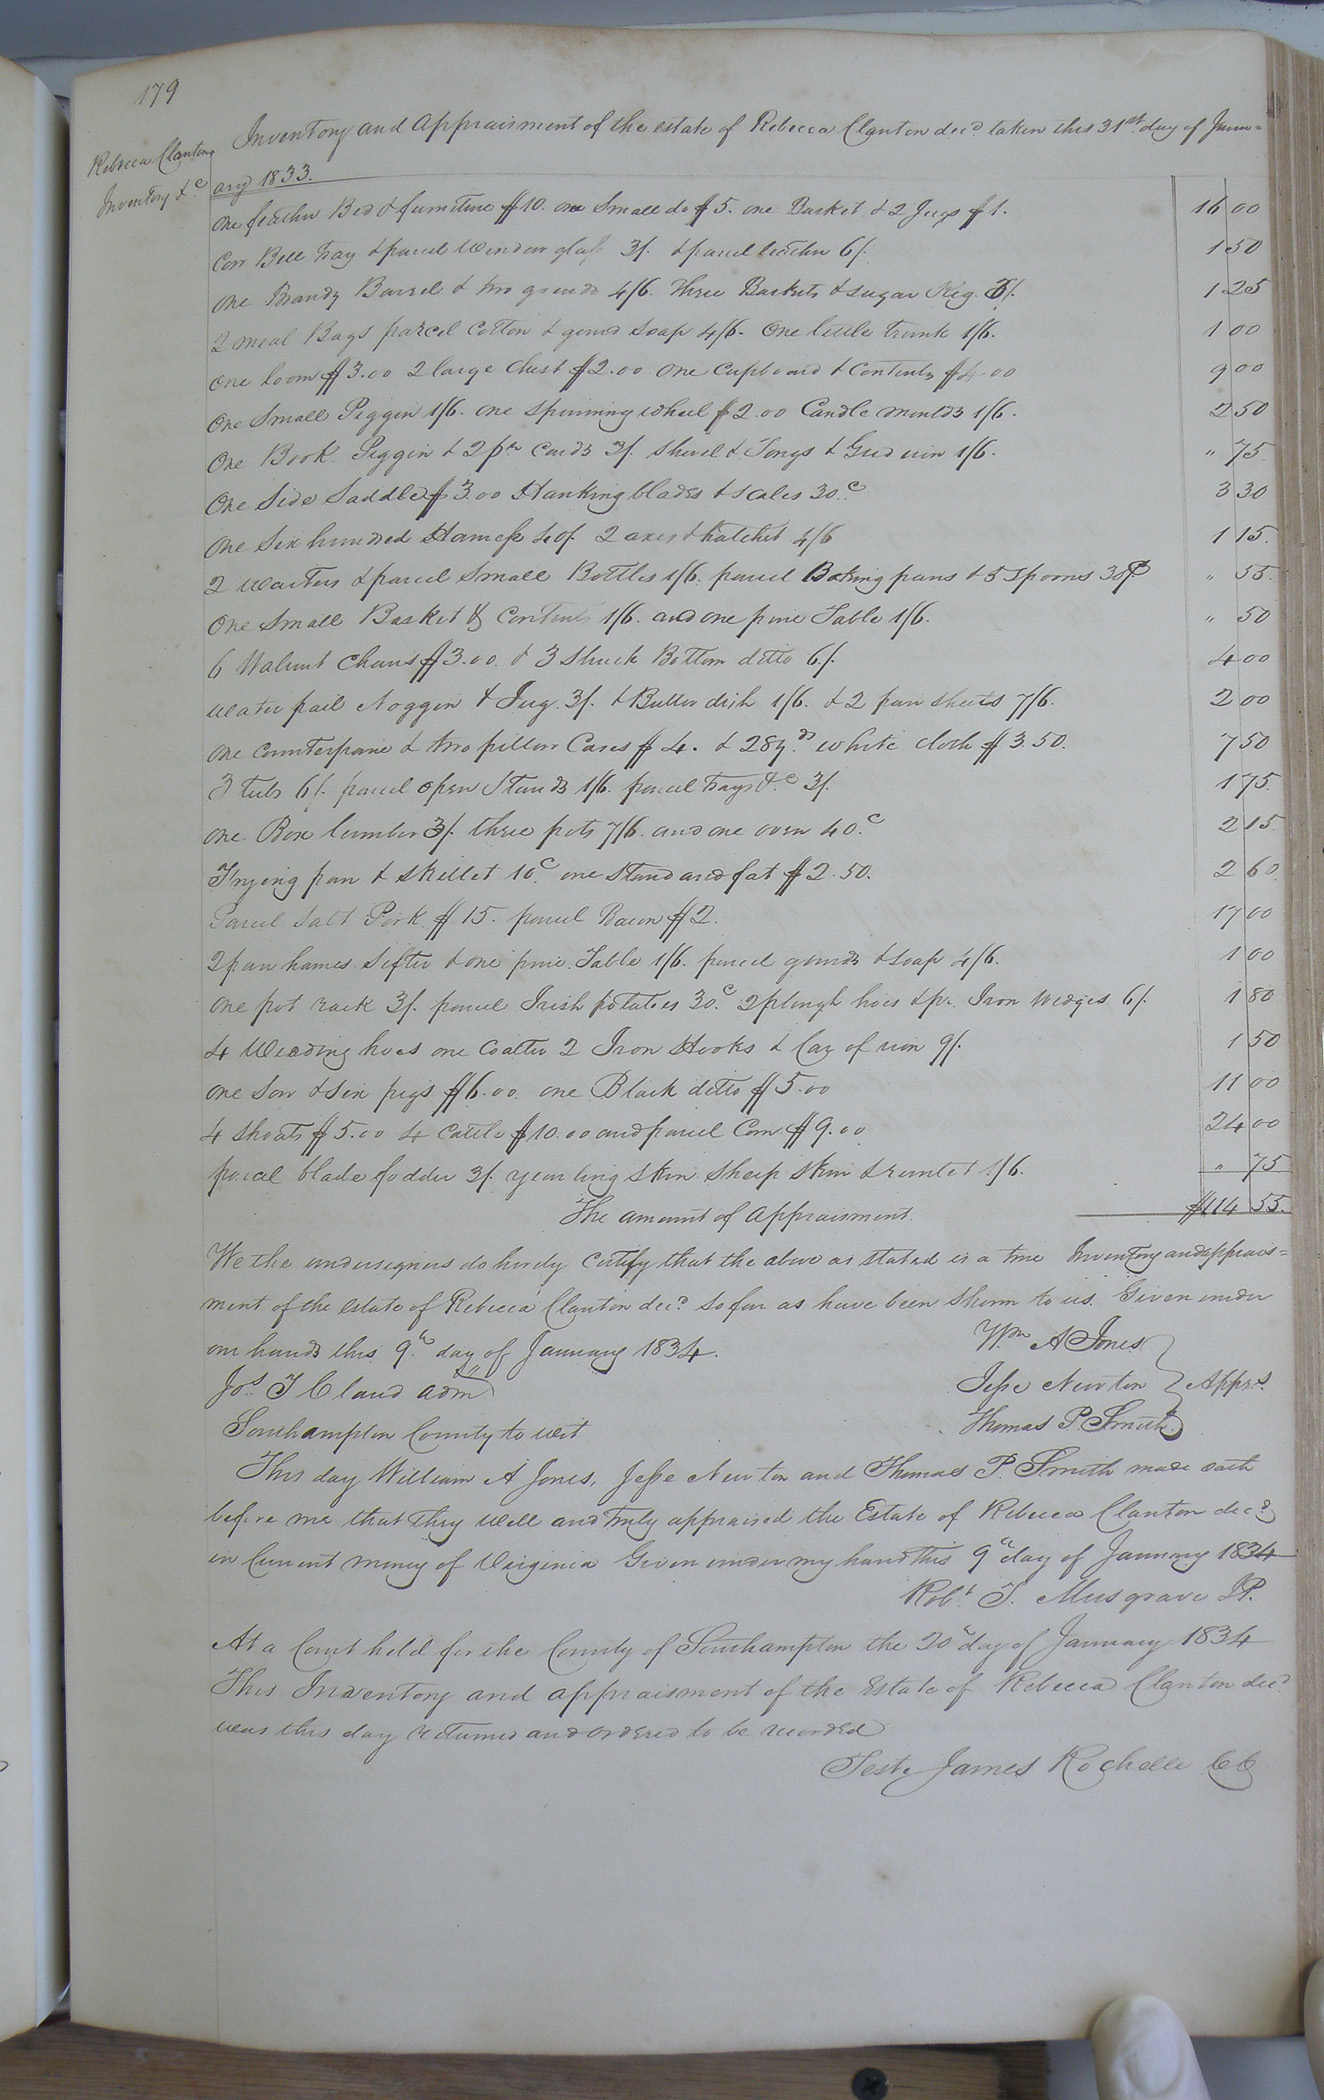 179
Inventory and Appraisment of the estate of Rebecca Clanton decd taken this 31st day of Janu=
Rebecca Clantons
Inventory &c
ary 1833.
One feather Bed & furniture $10. one Small do $5. one Basket & 2 Jugs $1. 16 00
Cow Bell tray & parcel window glass 3/. & parcel leather 6/. 1 50
One Brandy Barrel & two gourds 4/6. three Baskets & sugar Keg 3/. 1 25
2 meal Bags parcel Cotton & gourd soap 4/6. One little trunk 1/6. 1 00
One loom $3.00 2 large Chest $2.00 One Cupboard & Contents $4.00 9 00
One Small Piggin 1/6. one spinning wheel $2.00 Candle moulds 1/6. 2 50
One Book Piggin & 2 pr Cards 3/. Shovel & Tongs & Grid iron 1/6. " 75
One Side Saddle $3.00 Hanking blades & scales 30.c 3 30
One Six hundred Harness 40/. 2 axes & hatchet 4/6 1 15.
2 Waiters & parcel Small Bottles 1/6. parcel Baking pans & 5 Spoons 30 " 55
One Small Basket & Contents 1/6. and one pine Table 1/6. " 50
6 Walnut Chairs $3.00. & 3 Shuck Bottom ditto 6/. 4 00
Water pail Noggin & Jug. 3/. & Butter dish 1/6. & 2 pair Sheets 7/6. 2 00
One Counterpane & two pillow Cases $4. & 28 yds white cloth $3.50. 7 50
3 tubs 6/. parcel open Stands 1/6. parcel trays &c 3/. 1 75.
One Box lumber 3/. three pots 7/6. and one oven 40.c 2 15.
Frying pan & Skillet 10c. one Stand and fat $2.50. 2 60.
Parcel Salt Pork $15. parcel Bacon $2. 17 00
2 pair hames Sifter & one pine Table 1/6. parcel gourds & soap 4/6. 1 00
One pot rack 3/. parcel Irish potatoes 30.c 2 plough hoes & pr. Iron Wedges 6/. 1 80
4 Weeding hoes one Coalter 2 Iron Hooks & Car of iron 9/. 1 50
One Sow & Six pigs $6.00. one Black ditto $5.00 11 00
4 Shoats $5.00 4 Cattle $10.00 and parcel Corn $9.00 24 00
parcel blade fodder 3/. yearling skin. sheep skin & 1/6. " 75
The amount of Appraisment. $114 55.
We the undersigners do hereby Certify that the above as stated is a true Inventory and apprais=
ment of the estate of Rebecca Clanton decd so far as have been Shown to us. Given under
our hands this 9th day of January 1834.
Wm A Jones
Jos. T Claud adm
Jesse Newton } Apprs.
Southampton County to wit
Thomas P. Smith
This day William A Jones, Jesse Newton and Thomas P. Smith made oath
before me that they well and truly appraised the Estate of Rebecca Clanton decd
in Current money of Virginia Given under my hand this 9th day of January 1834
Robt. T. Musgrave JP.
At a Court held for the County of Southampton the 20th day of January 1834
This Inventory and appraisment of the Estate of Rebecca Clanton decd
was this day returned and ordered to be recorded
Teste James Rochelle CC